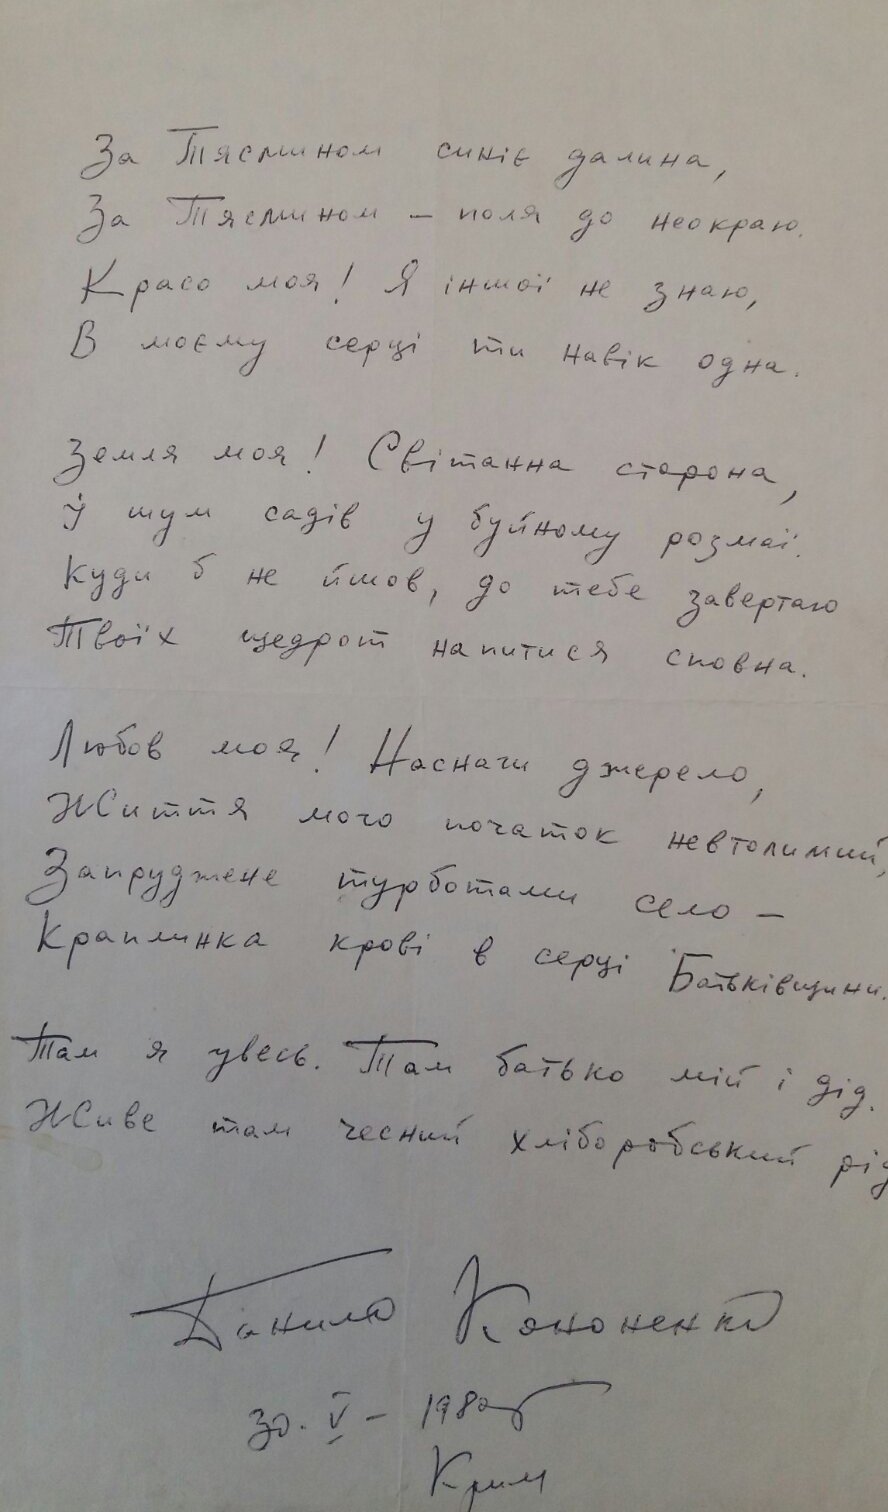 За Тясмином синіє далина,
За Тясмином – поля до неокраю.
Красо моя! Я іншої не знаю,
В моєму серці ти навік одна.
Земля моя! Світанна сторона,
Й шум садів у буйному розмаї.
Куди б не йшов, до тебе завертаю
Твоїх щедрот напитися сповна.
Любов моя! Наснаги джерело,
Життя мого початок невтолимий,
Запруджене турботами село –
Краплинка крові в серці Батьківщини.
Там я увесь. Там батько мій і дід.
Живе там чесний хліборобський рід
Данило Кононенко
30. V – 1980
Крим